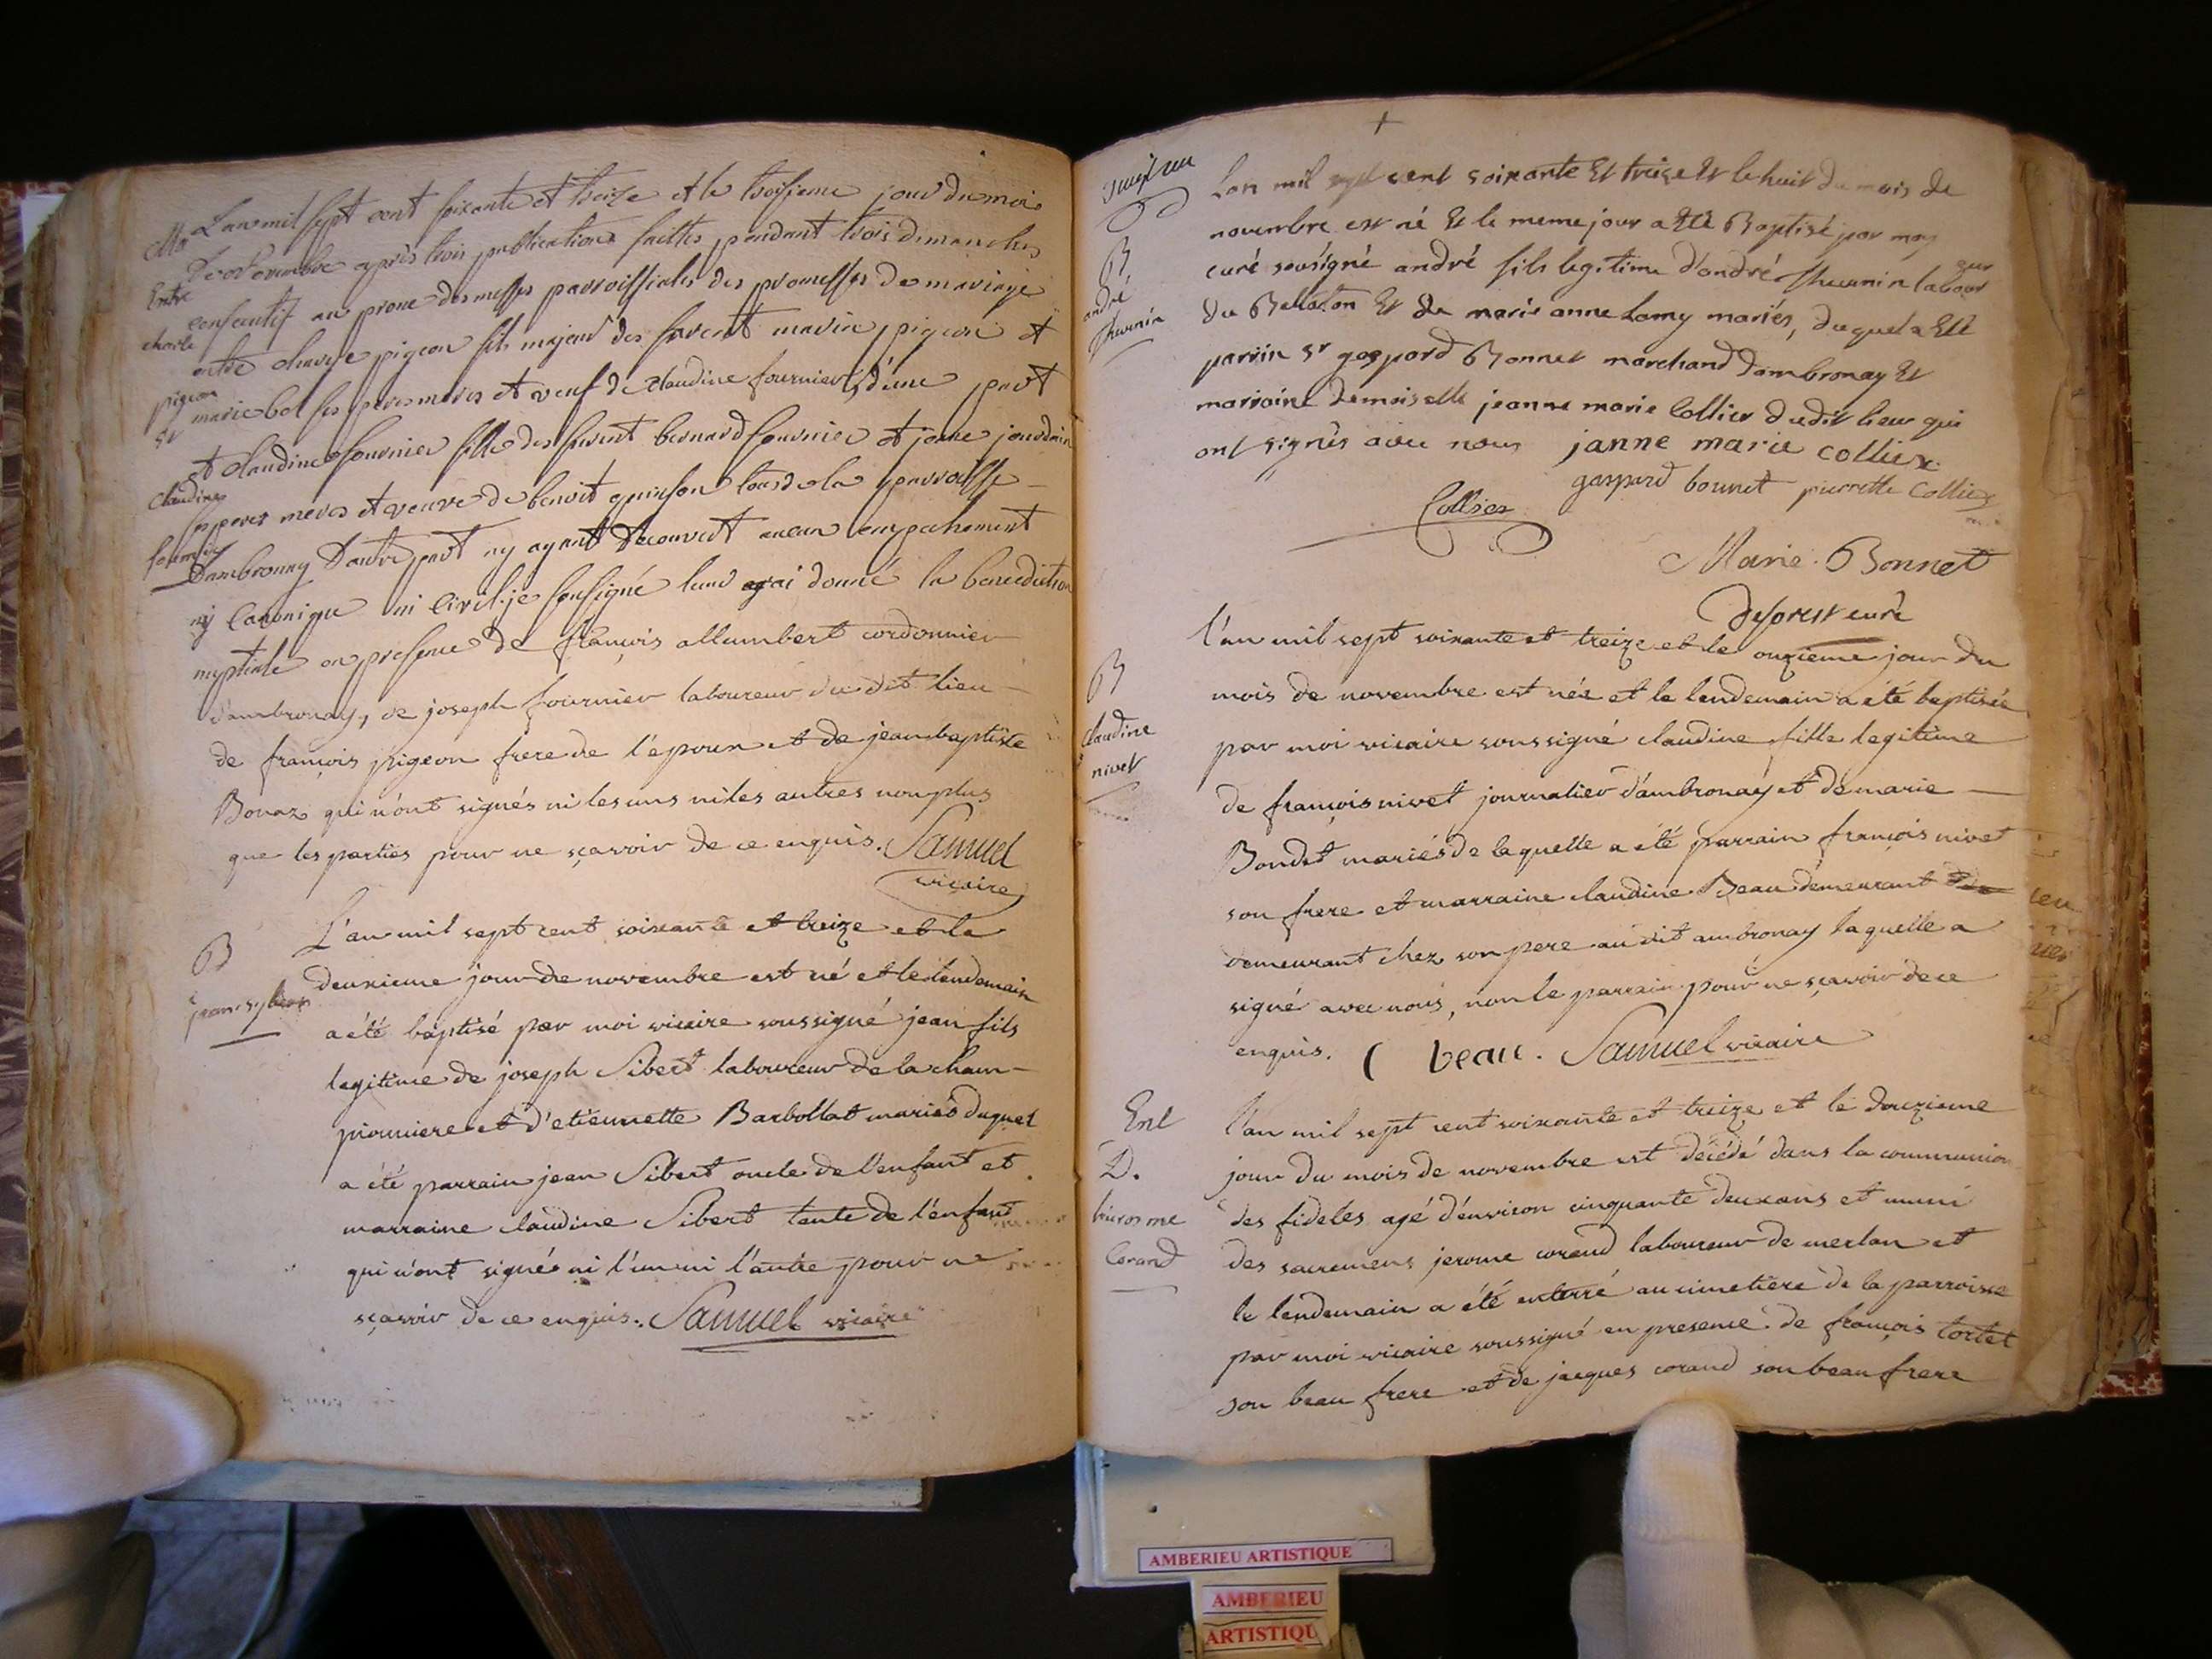 Mar L'an mil sept cent soixante et treize et le troisieme jour du mois
de novembre après trois publications faittes pendant trois dimanches
Entre
consecutif au prone des messes parroissiales des promesses de mariage
charle
entre charle pigeon fils majeur des furent mavin pigeon et
pigeon
marie bel ses peres meres et veuf de claudine fournier, d'une part
et
et claudine fournier fille des furent bernard fournier et jeane jourdain
claudine
ses peres meres et veuve de benoit quinson tous de la parroisse
fournier
d'ambronay d'autre part ny ayant decouvert aucun empechement
ny canonique ni civil. je soussigné leur ai donné la benediction
nuptiale en presence de françois allumbert cordonnier
d'ambronay, de joseph fournier laboureur du dit lieu
de françois pigeon frere de l'epoux et de jean baptiste
Bonaz qui n'ont signés ni les uns ni les autres non plus
que les parties pour ne sçavoir de ce enquis. Samuel
vicaire
L'an mil sept cent soixante et treize et le
B
deuxieme jour de novembre est né et le lendemain
jean sybert
a été baptisé par moi vicaire soussigné jean fils
legitime de joseph Sibert laboureur de la cham-
pionniere et d'etiennette Barbollat mariés duquel
a été parrain jean Sibert oncle de l'enfant et
marraine claudine Sibert tante de l'enfant
qui n'ont signés ni l'un ni l'autre pour ne
sçavoir de ce enquis. Samuel vicaire
L'an mil sept cent soixante et treize et le huit du mois de
novembre est né et le meme jour a eté Baptisé par moy
B
curé sousigné andré fils legitime d'andré thevenin laboureur
andré
thevenin
du Bellaton et de marie anne Lamy mariés, duquel a eté
parrin sr gaspard Bonnet marchand d'ambronay et
marraine demoiselle jeanne marie Collier dudit lieu qui
ont signés avec nous janne marie collier
gaspard bonnet pierrette Collier
Collier
Marie Bonnet
deforest curé
l'an mil sept soixante et treize et le onzieme jour du
B
mois de novembre est née et le lendemain a été baptisée
claudine
par moi vicaire soussigné claudine fille legitime
nivet
de françois nivet journalier d'ambronay et de marie
Bondet mariés de laquelle a été parrain françois nivet
son frere et marraine claudine Beau demeurant
demeurant chez son pere au dit ambronay laquelle a
signé avec nous, non le parrain pour ne sçavoir de ce
enquis. beau. Samuel vicaire
Ent
l'an mil sept cent soixante et treize et le douzieme
D.
jour du mois de novembre est décédé dans la communion
hierosme
des fideles agé d'environ cinquante deux ans et muni
Corand
des sacremens jerome corand laboureur de merlan et
le lendemain a été enterré au cimetiere de la parroisse
par moi vicaire soussigné en presence de françois tortel
son beau frere et de jacques corand son beau frere
AMBERIEU ARTISTIQUE
AMBERIEU
ARTISTIQU